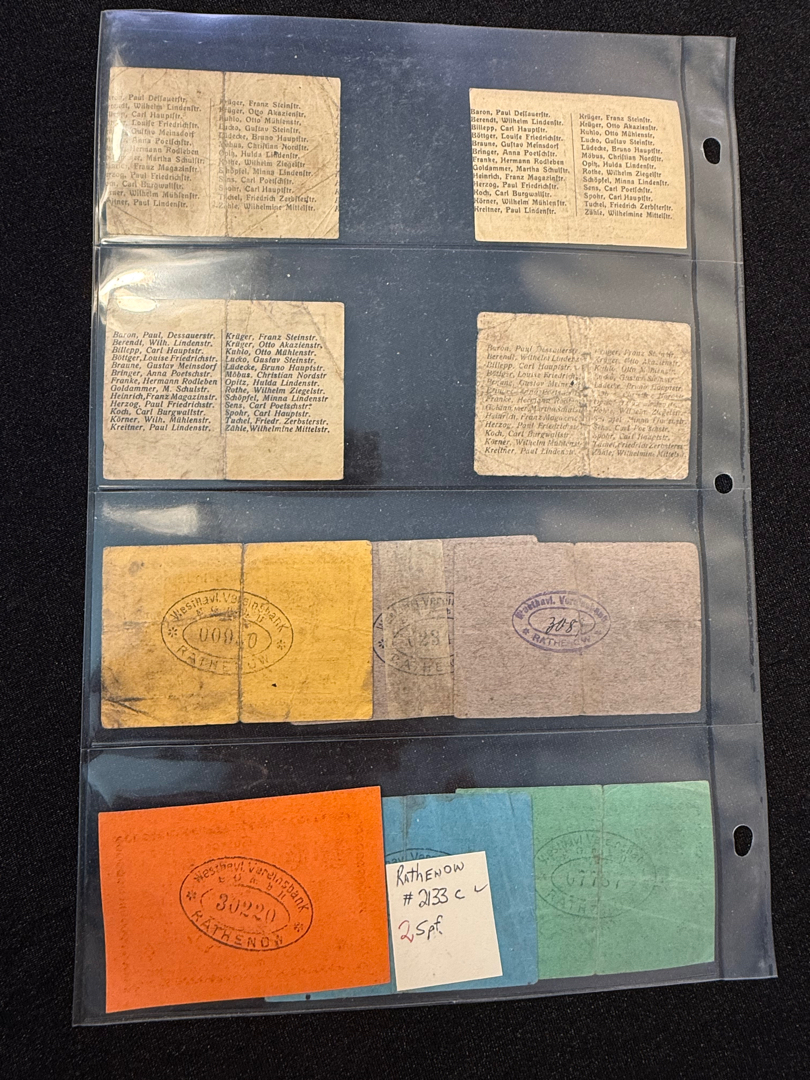 Paul Dessauerstr.
Wilhelm Lindenstr.
Carl Hauptstr.
Louise Friedrichstr.
Gustav Meinsdorf
Anna Poetschstr.
Hermann Rodleben
Martha Schulstr.
Franz Magazinstr.
Paul Friedrichstr.
Carl Burgwallstr.
Wilhelm Mühlenstr.
Paul Lindenstr.
Krüger, Franz Steinstr.
Krüger, Otto Akazienstr.
Kuhlo, Otto Mühlenstr.
Lucko, Gustav Steinstr.
Lüdecke, Bruno Hauptstr.
Möbus, Christian Nordstr.
Opitz, Hulda Lindenstr.
Rothe, Wilhelm Ziegelstr.
Schöpfel, Minna Lindenstr.
Sens, Carl Poetschstr.
Spohr, Carl Hauptstr.
Tuchel, Friedrich Zerbsterstr.
Zähle, Wilhelmine Mittelstr.
Baron, Paul Dessauerstr.
Berendt, Wilhelm Lindenstr.
Billepp, Carl Hauptstr.
Böttger, Louise Friedrichstr.
Braune, Gustav Meinsdorf
Bringer, Anna Poetschstr.
Franke, Hermann Rodleben
Goldammer, Martha Schulstr.
Heinrich, Franz Magazinstr.
Herzog, Paul Friedrichstr.
Koch, Carl Burgwallstr.
Körner, Wilhelm Mühlenstr.
Kreitner, Paul Lindenstr.
Krüger, Franz Steinstr.
Krüger, Otto Akazienstr.
Kuhlo, Otto Mühlenstr.
Lucko, Gustav Steinstr.
Lüdecke, Bruno Hauptstr.
Möbus, Christian Nordstr.
Opitz, Hulda Lindenstr.
Rothe, Wilhelm Ziegelstr.
Schöpfel, Minna Lindenstr.
Sens, Carl Poetschstr.
Spohr, Carl Hauptstr.
Tuchel, Friedrich Zerbsterstr.
Zähle, Wilhelmine Mittelstr.
Baron, Paul, Dessauerstr.
Berendt, Wilh. Lindenstr.
Billepp, Carl Hauptstr.
Böttger, Louise Friedrichstr.
Braune, Gustav Meinsdorf
Bringer, Anna Poetschstr.
Franke, Hermann Rodleben
Goldammer, M. Schulstr.
Heinrich, Franz Magazinstr.
Herzog, Paul Friedrichstr.
Koch, Carl Burgwallstr.
Körner, Wilh. Mühlenstr.
Kreitner, Paul Lindenstr.
Krüger, Franz Steinstr.
Krüger, Otto Akazienstr.
Kuhlo, Otto Mühlenstr.
Lucko, Gustav Steinstr.
Lüdecke, Bruno Hauptstr.
Möbus, Christian Nordstr
Opitz, Hulda Lindenstr.
Rothe, Wilhelm Ziegelstr.
Schöpfel, Minna Lindenstr
Sens, Carl Poetschstr.
Spohr, Carl Hauptstr.
Tuchel, Friedr. Zerbsterstr.
Zähle, Wilhelmine Mittelstr.
Baron, Paul Dessauerstr.
Berendt, Wilhelm Lindenstr.
Billepp, Carl Hauptstr.
Böttger, Louise Friedrichstr.
Franke, Hermann
Heinrich, Franz Magazinstr.
Herzog, Paul Friedrichstr.
Koch, Carl Burgwallstr.
Körner, Wilhelm Mühlenstr.
Kreitner, Paul Lindenstr.
Krüger, Franz
Krüger, Otto Akazienstr.
Spohr, Carl Hauptstr.
Tuchel, Friedrich Zerbsterstr.
Zähle, Wilhelmine Mittelstr.
Westhavl. Vereinsbank
RATHENOW
Westhavl. Vereinsbank
308
RATHENOW
Westhavl. Vereinsbank
30220
RATHENOW
RATHENOW
# 2133 c ✓
25pf.
Westhavl. Vereinsbank